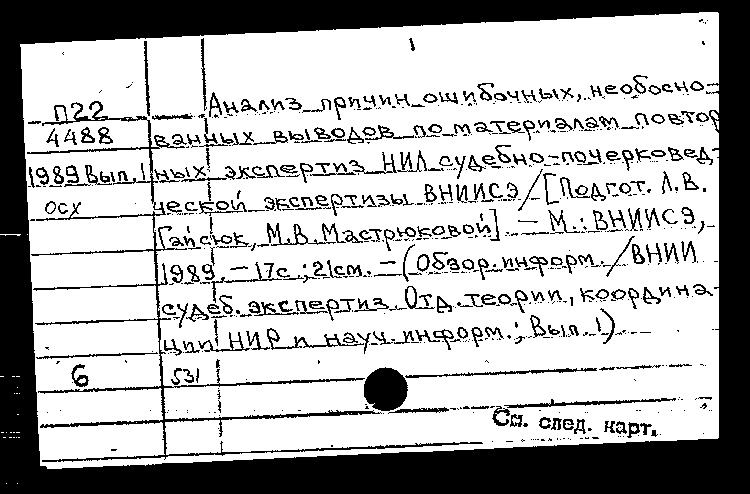 П22
4488
1989 Вып. 1
осх
Анализ причин ошибочных, необосно-
ванных выводов по материалам повтор
ных экспертиз НИЛ судебно-почерковед-
ческой экспертизы ВНИИСЭ/[Подгот. Л.В.
Гайсюк, М.В. Мастрюковой]. — М.: ВНИИСЭ,
1989. — 17с.; 21см. — (Обзор. информ. /ВНИИ
судеб. экспертиз. Отд. теории, координа-
ции НИР и науч. информ.; Вып. 1).
6
531
См. след. карт.